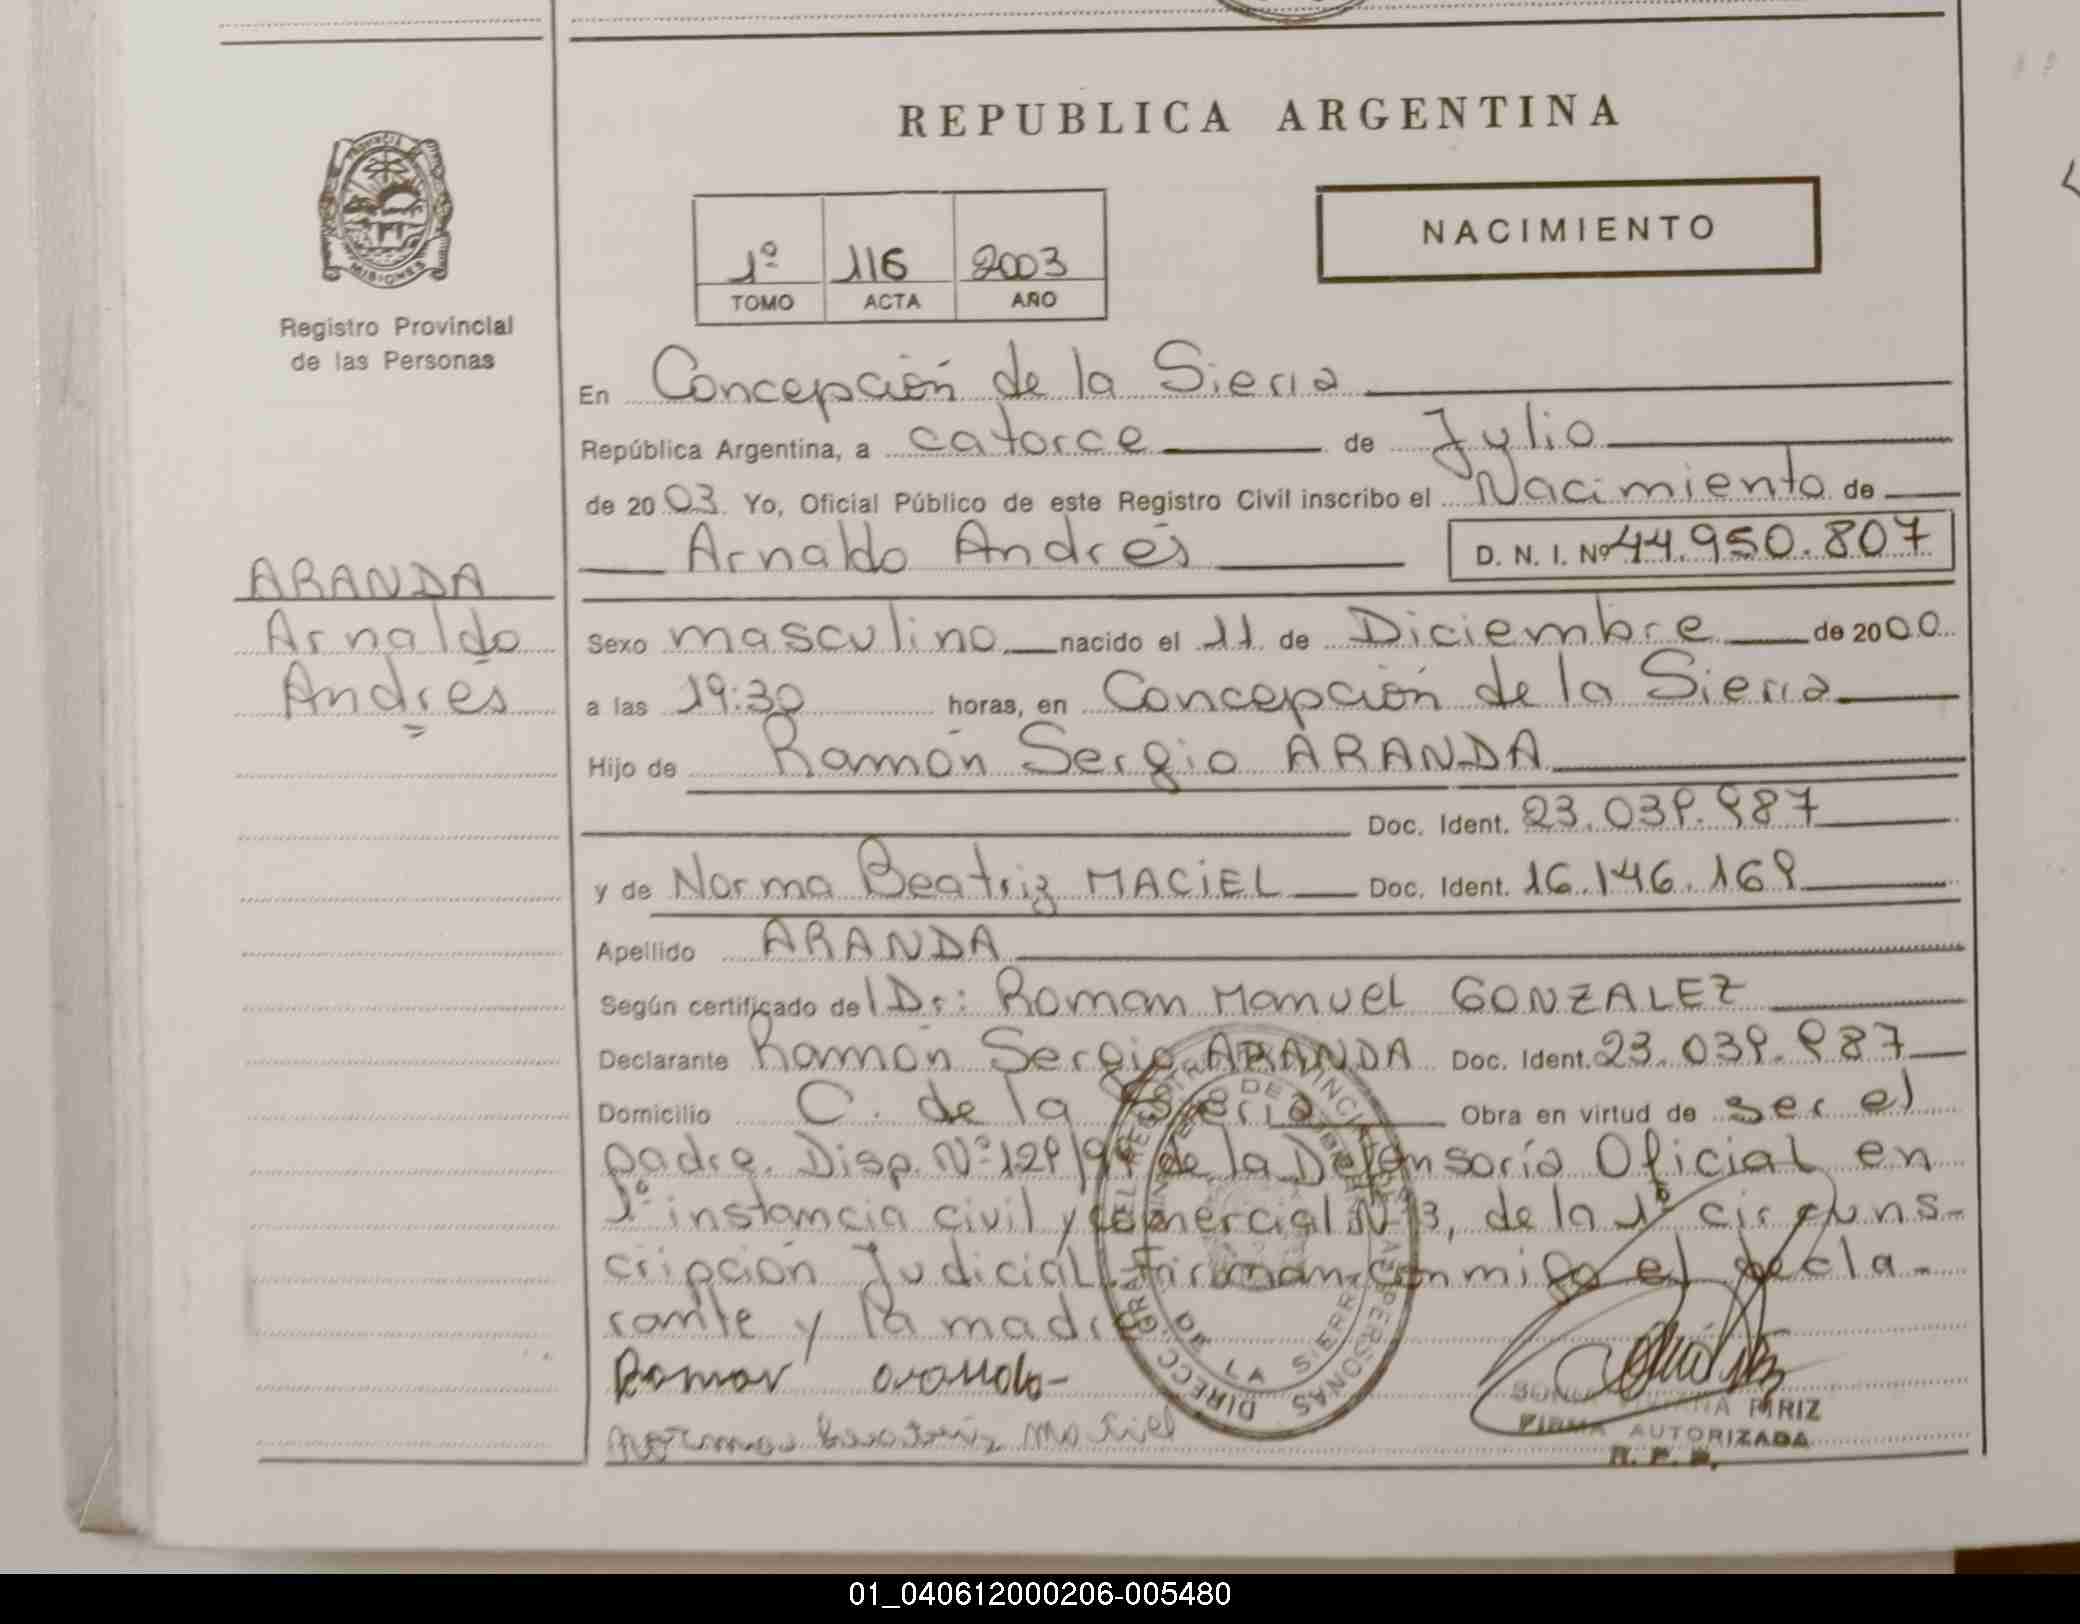 REPUBLICA ARGENTINA
NACIMIENTO
1º 116 2003
TOMO ACTA AÑO
MISIONES
Registro Provincial
de las Personas
En Concepción de la Sierra
República Argentina, a catorce de Julio
de 2003 Yo, Oficial Público de este Registro Civil inscribo el Nacimiento de
Arnaldo Andrés D. N. I. Nº 44.950.807
ARANDA
Arnaldo
Andrés
Sexo masculino nacido el 11 de Diciembre de 2000
a las 19:30 horas, en Concepción de la Sierra
Hijo de Ramón Sergio ARANDA
Doc. Ident. 23.039.987
y de Norma Beatriz MACIEL Doc. Ident. 16.146.169
Apellido ARANDA
Según certificado del Dr: Roman Manuel GONZALEZ
Declarante Ramón Sergio ARANDA Doc. Ident. 23.039.987
Domicilio C. de la Sierra Obra en virtud de ser el
padre. Disp. Nº 129/94 de la Defensoría Oficial en
1º instancia civil y comercial Nº 3, de la 1º circuns-
cripción Judicial. Firman conmigo el decla-
rante y la madre.
Ramon aranda-
norma beatriz maciel
PIRIZ
FIRMA AUTORIZADA
R. P. P.
DE LA SIERRA
01_040612000206-005480